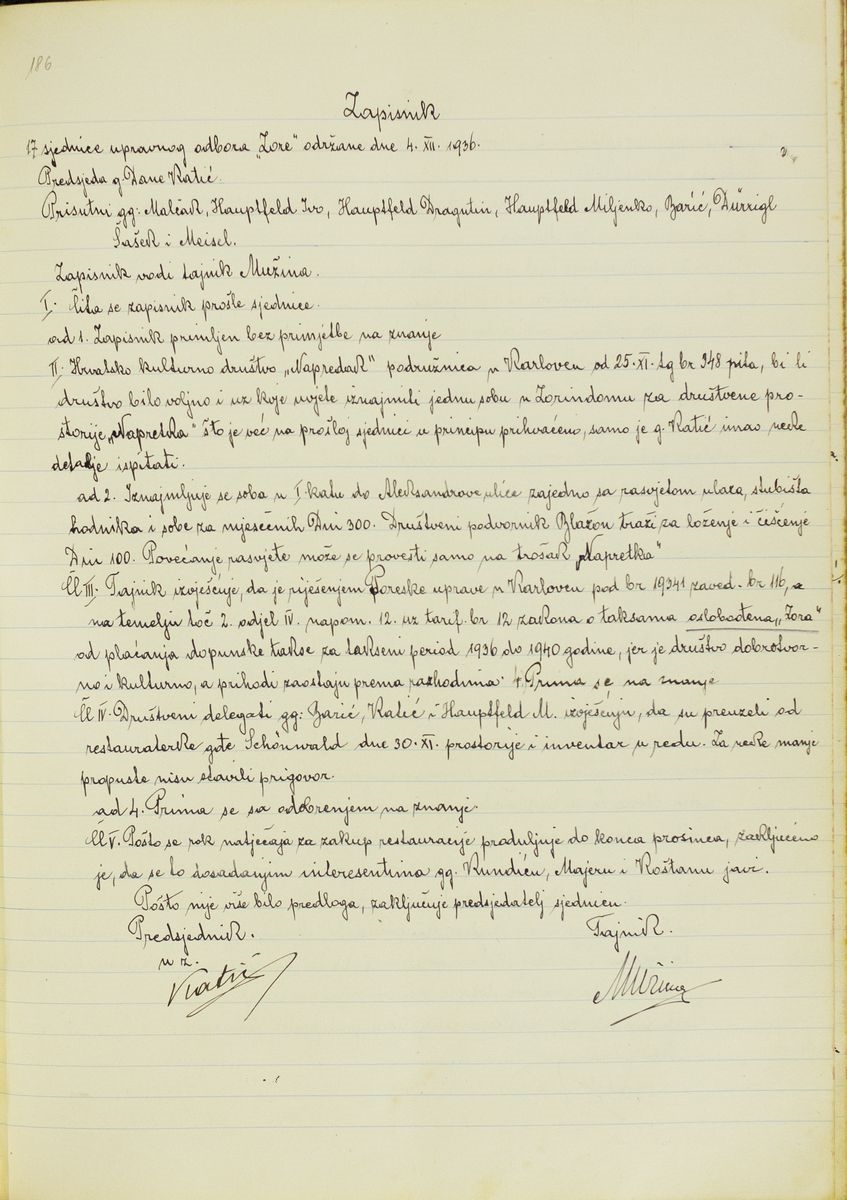 186
Zapisnik
17 sjednice upravnog odbora „Zore" održane dne 4. XII. 1936.
Predsjeda g. Dane Katić.
Prisutni gg: Malčak, Hauptfeld Ivo, Hauptfeld Dragutin, Hauptfeld Miljenko, Barić, Dürrigl
Šašek i Meisel.
Zapisnik vodi tajnik Mužina.
I. Čita se zapisnik prošle sjednice.
ad 1. Zapisnik primljen bez primjetbe na znanje
II. Hrvatsko kulturno društvo „Napredak" podružnica u Karlovcu od 25. XI. tg br 348 pita, bi li
društvo bilo voljno i uz koje uvjete iznajmiti jednu sobu u Zorindomu za društvene pro-
storije „Napretka" što je već na prošloj sjednici u principu prihvaćeno, samo je g. Katić imao neke
detalje ispitati.
ad 2. Iznajmljuje se soba u I. katu do Aleksandrove ulice zajedno sa rasvjetom ulaza, stubišta
hodnika i sobe za mjesečnih Din 300. Društveni podvornik Blažon traži za loženje i čišćenje
Din 100. Povećanje rasvjete može se provesti samo na trošak „Napretka"
Čl III. Tajnik izvješćuje, da je riješenjem Poreske uprave u Karlovcu pod br 19341 zaved. br 116, a
na temelju toč 2. odjel IV. napom. 12. uz tarif. br 12 zakona o taksama oslobođena „Zora"
od plaćanja dopunske takse za takseni period 1936 do 1940 godine, jer je društvo dobrotvor-
no i kulturno, a prihodi zaostaju prema rashodima. Prima se na znanje
Čl IV. Društveni delegati gg: Barić, Katić i Hauptfeld M. izvješćuju, da su preuzeli od
restauraterke gđe Schönwald dne 30. XI. prostorije i inventar u redu. Za neke manje
propuste nisu stavili prigovor.
ad 4. Prima se sa odobrenjem na znanje.
Čl V. Pošto se rok natječaja za zakup restauracije produljuje do konca prosinca, zaključeno
je, da se to dosadanjim interesentima gg. Kundiću, Majeru i Koštanu javi.
Pošto nije više bilo predloga, zaključuje predsjedatelj sjednicu.
Predsjednik. Tajnik.
u z.
Katić Mužina